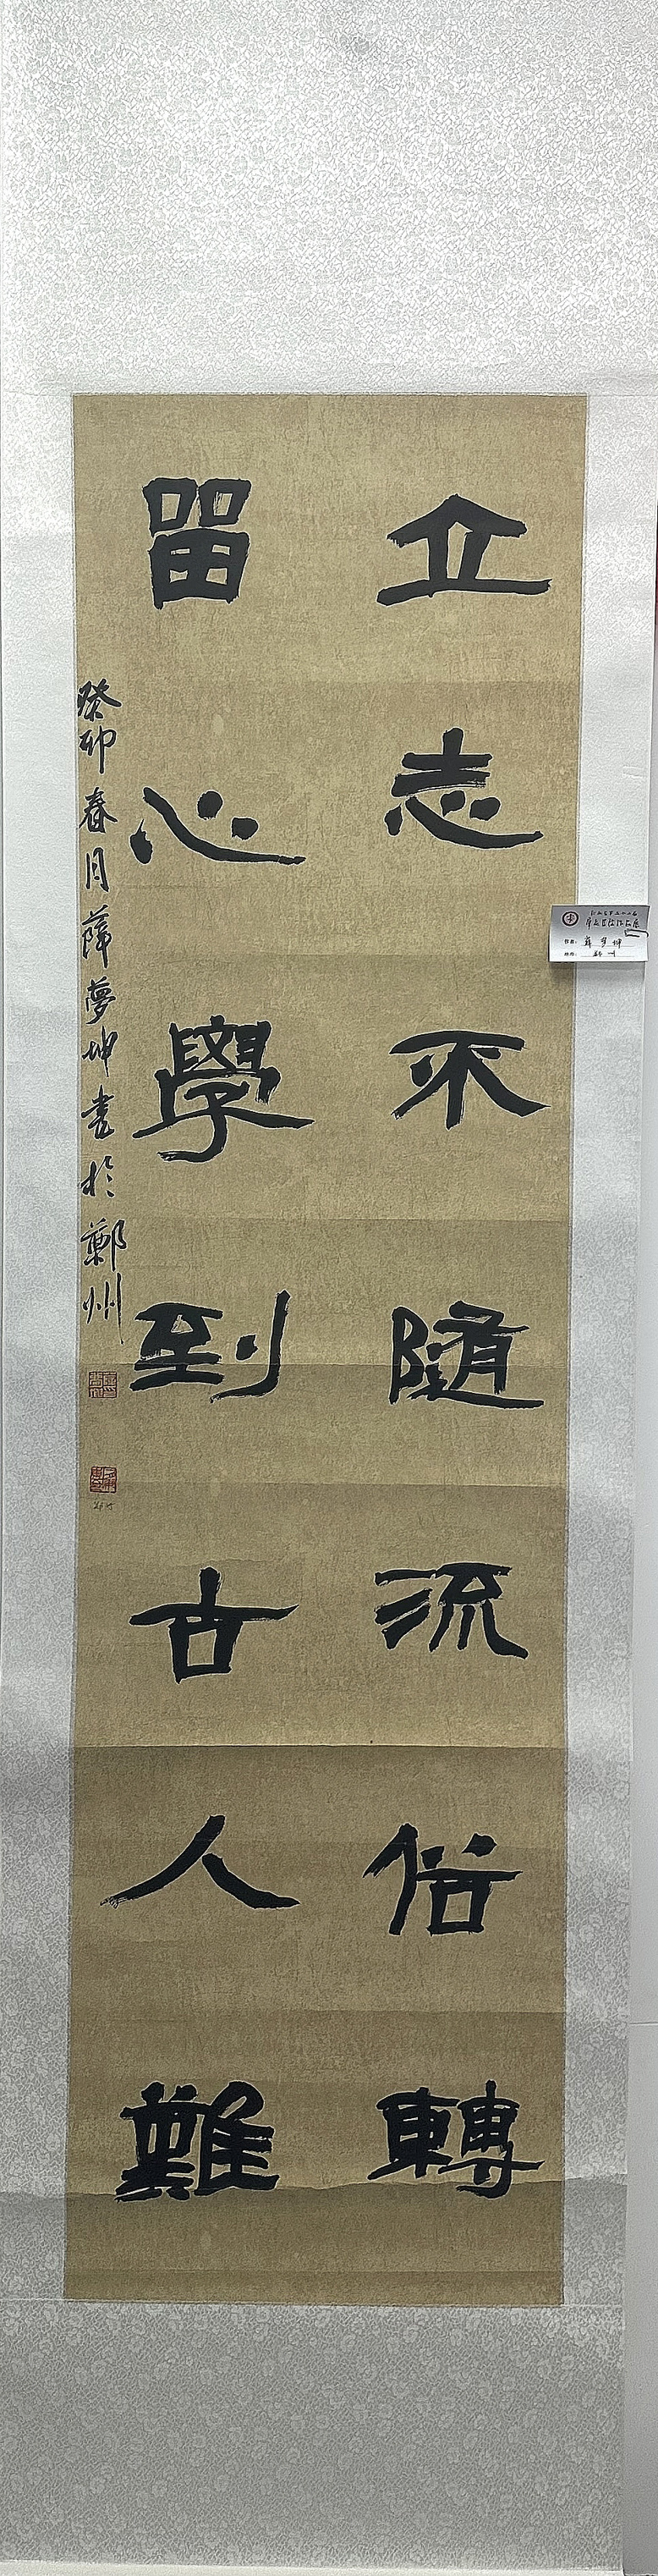 立志不随流俗轉
留心學到古人難
癸卯春月薛夢坤書於鄭州
作者：薛夢坤